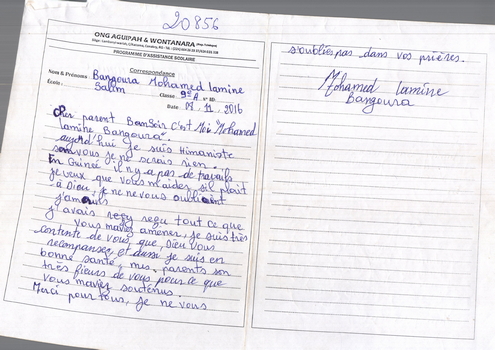 20856
ONG AGUIPAH & WONTANARA
PROGRAMME D'ASSISTANCE SCOLAIRE
Correspondance
Nom & Prénoms Bangoura Mohamed lamine
École : Salim Classe : 9e A. N° ID:
Date : 07. 11. 2016
Cher parent BomSoir C'est Moi Mohamed
lamine Bangoura.
aujord'hui je suis Himaniste
sans vous je ne serais rien.
En Guinée il n'y a pas de travails
je veux que vous m'aidez s'il plait
à Dieu, je ne vous oubliaint
j'amais
j'avais reçu tout ce que
vous m'avez amener, je suis très
contente de vous que, Dieu vous
recompansez et aussi je suis en
bonne santé, mes parents son
très fieurs de vous pour ce que
vous m'avez soutenus.
Merci pour tous, je ne vous
s'oublies pas dans vos prières.
Mohamed lamine
Bangoura